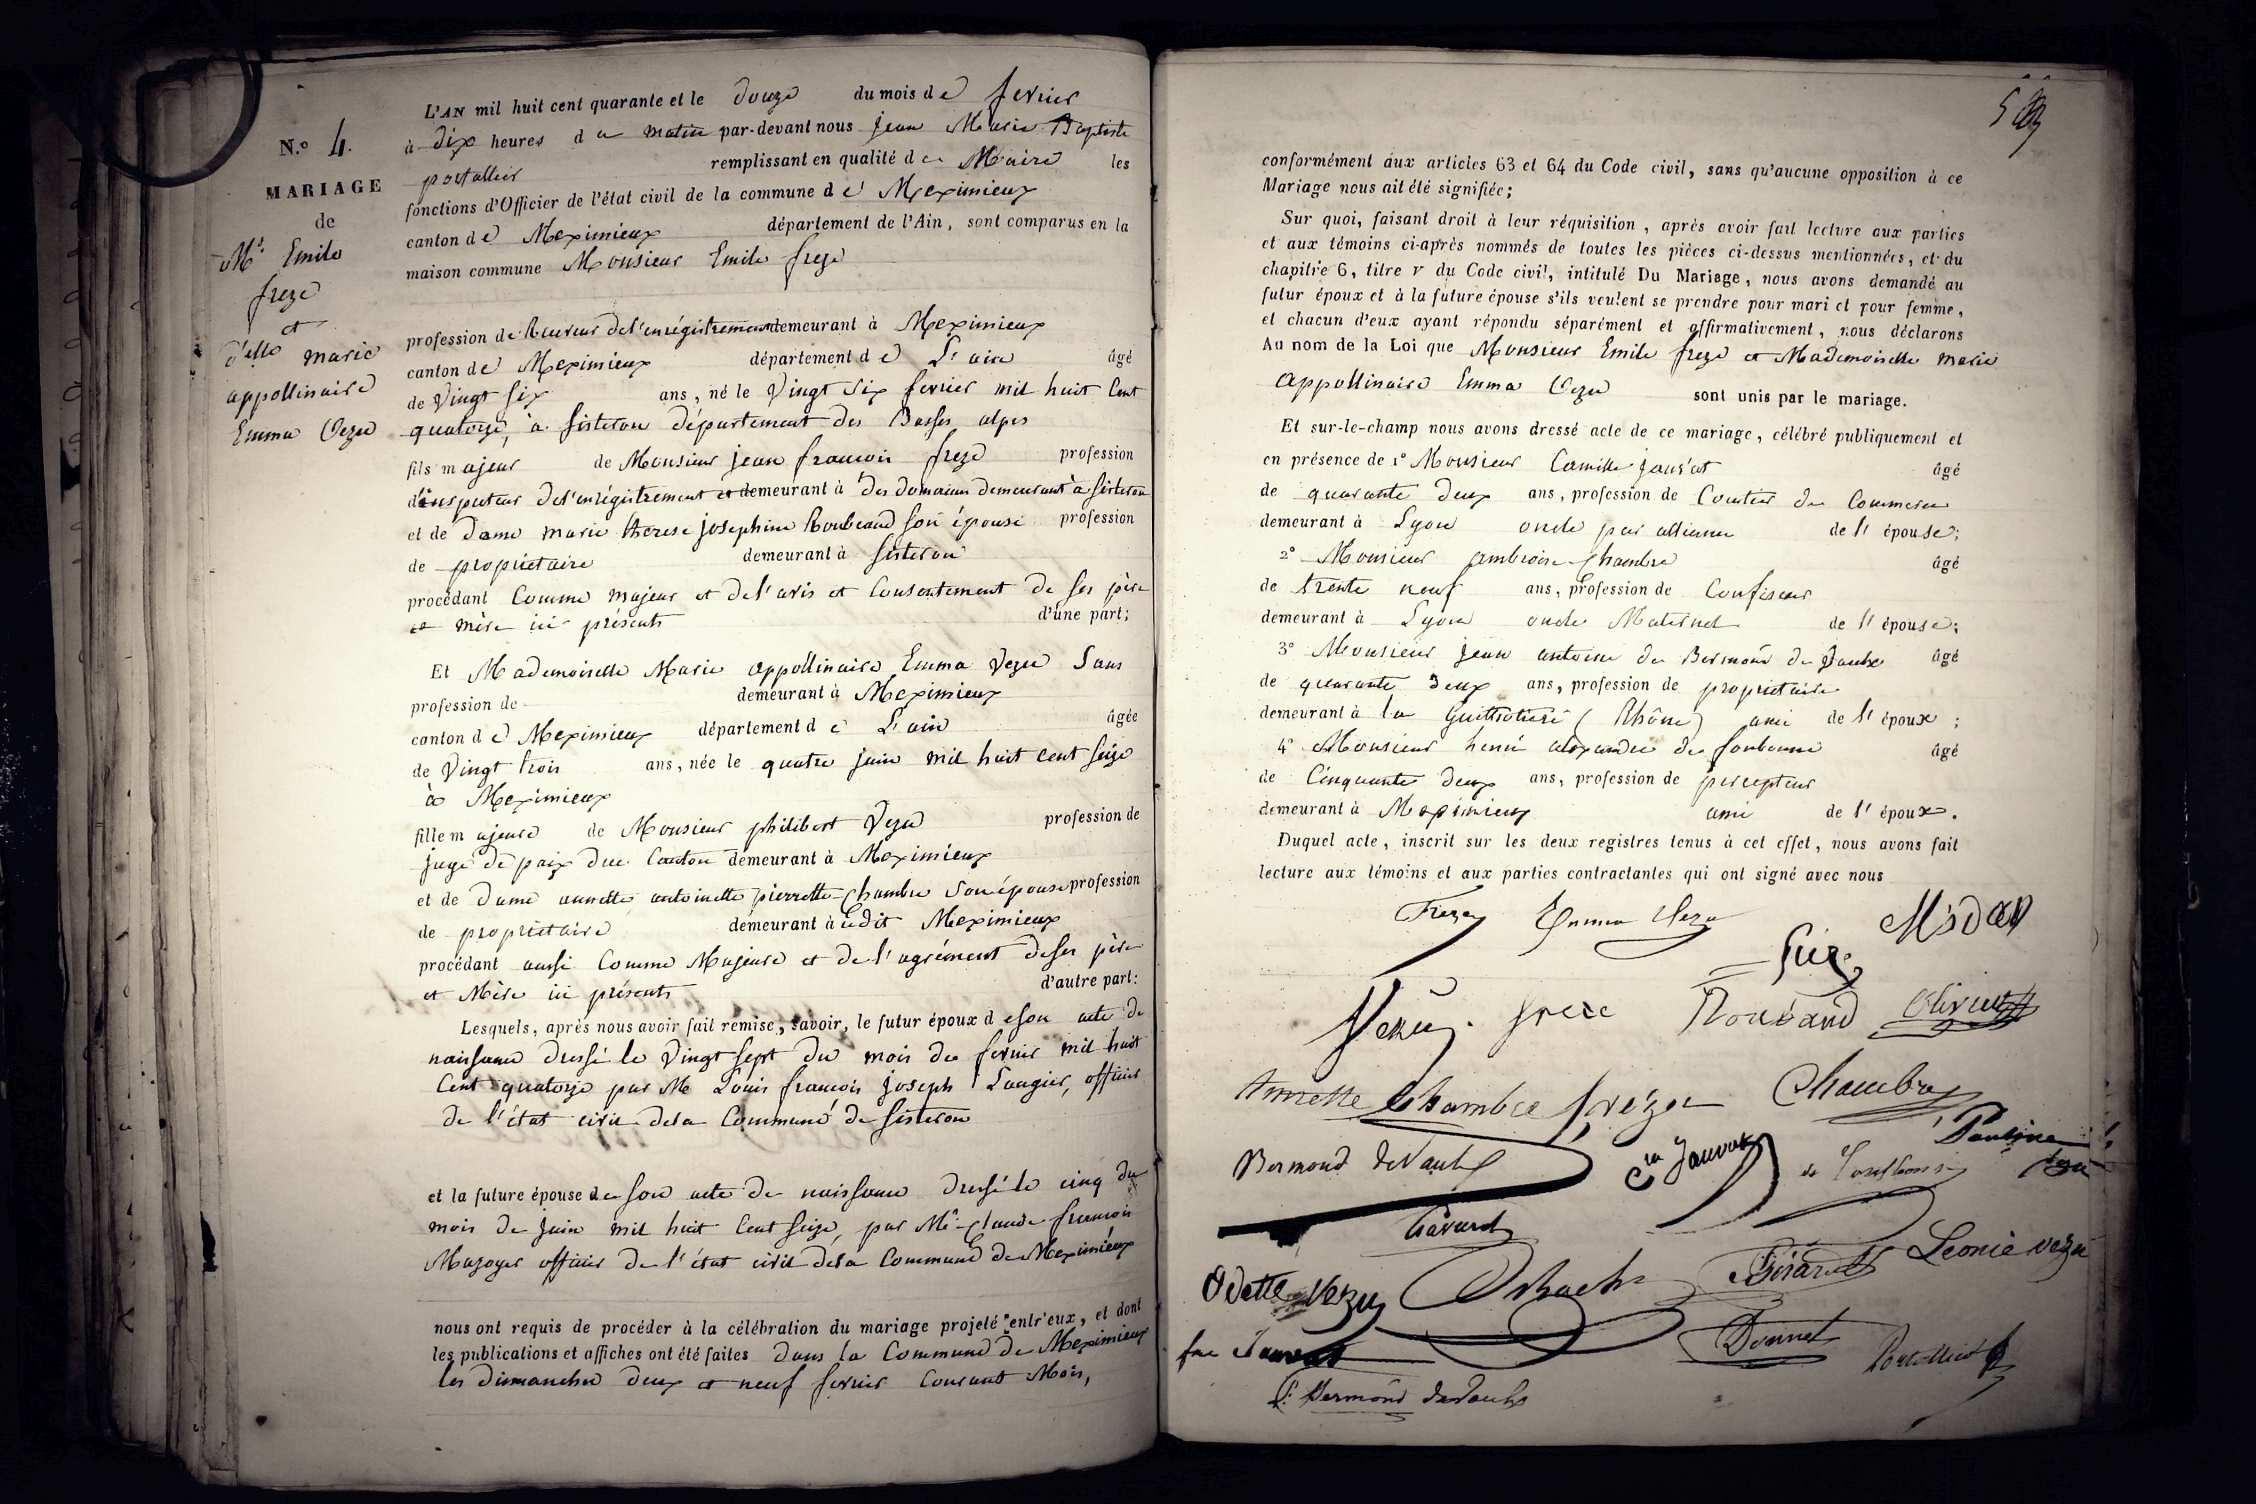 N.º 4.
MARIAGE
de
Mr. Emile
freze
et
d'elle marie
appollinaire
Emma Vezu
L'AN mil huit cent quarante et le douze du mois de fevrier
à dix heures du matin par-devant nous jean Marie Baptiste
portallier remplissant en qualité de Maire les
fonctions d'Officier de l'état civil de la commune de Meximieux
canton de Meximieux département de l'Ain, sont comparus en la
maison commune Monsieur Emile freze
profession de Receveur de l'enrégistrement demeurant à Meximieux
canton de Meximieux département de L'ain âgé
de Vingt six ans, né le Vingt six fevrier mil huit Cent
quatorze, à sisteron département des Basses alpes
fils majeur de Monsieur jean francois freze profession
d'inspecteur de l'enrégistrement et demeurant à des domaines demeurant à sisteron
et de Dame marie thérese josephine Roubeaud son épouse profession
de propriétaire demeurant à sisteron
procédant Comme majeur et de l'avis et Consentement de ses père
et mère ici présents d'une part;
Et Mademoiselle Marie appollinaire Emma Vezu Sans
profession de demeurant à Meximieux
canton de Meximieux département de L'ain âgée
de Vingt trois ans, née le quatre juin mil huit cent seize
à Meximieux
fille majeure de Monsieur philibert Vezu profession de
juge de paix du Canton demeurant à Meximieux
et de Dame annette antoinette pierrette Chambre son épouse profession
de propriétaire demeurant à udit Meximieux
procédant aussi Comme Majeure et de l'agrément de ses père
et Mère ici présents d'autre part:
Lesquels, après nous avoir fait remise, savoir, le futur époux de son acte de
naissance dressé le Vingt sept du mois de fevrier mil huit
Cent quatorze par Mr Louis francois joseph Laugier, officier
de l'état civil de la Commune de Sisteron
et la future épouse de son acte de naissance dressé le cinq du
mois de juin mil huit Cent seize, par Mr. Claude francois
Mazoyer officier de l'état civil de la Commune de Meximieux
nous ont requis de procéder à la célébration du mariage projeté entr'eux, et dont
les publications et affiches ont été faites dans la Commune de Meximieux
les Dimanches deux et neuf fevrier Courant Mois,
conformément aux articles 63 et 64 du Code civil, sans qu'aucune opposition à ce
Mariage nous ait été signifiée;
Sur quoi, faisant droit à leur réquisition, après avoir fait lecture aux parties
et aux témoins ci-après nommés de toutes les pièces ci-dessus mentionnées, et du
chapitre 6, titre v du Code civil, intitulé Du Mariage, nous avons demandé au
futur époux et à la future épouse s'ils veulent se prendre pour mari et pour femme,
et chacun d'eux ayant répondu séparément et affirmativement, nous déclarons
Au nom de la Loi que Monsieur Emile freze et Mademoiselle marie
appollinaire Emma Vezu sont unis par le mariage.
Et sur-le-champ nous avons dressé acte de ce mariage, célébré publiquement et
en présence de 1º Monsieur Camille jauvat âgé
de quarante deux ans, profession de Courtier de Commerce
demeurant à Lyon oncle par alliance de l'épouse;
2º Monsieur ambroise Chambre âgé
de trente neuf ans, profession de Confiseur
demeurant à Lyon oncle Maternel de l'épouse;
3º Monsieur jean antoine de Bermond de Vaulx âgé
de quarante deux ans, profession de propriétaire
demeurant à la Guillotière (Rhône) ami de l'époux;
4º Monsieur henri alexandre de âgé
de Cinquante deux ans, profession de percepteur
demeurant à Meximieux ami de l'époux.
Duquel acte, inscrit sur les deux registres tenus à cet effet, nous avons fait
lecture aux témoins et aux parties contractantes qui ont signé avec nous
Freze Emma Vezu
Vezu freze Roubaud
Annette Chambre Chambre
Bermond deVaulx Jauvat Pauline Vezu
Odette Vezu Girard Leonie Vezu
Jauvat Donnet Portallier
Bermond deVaulx